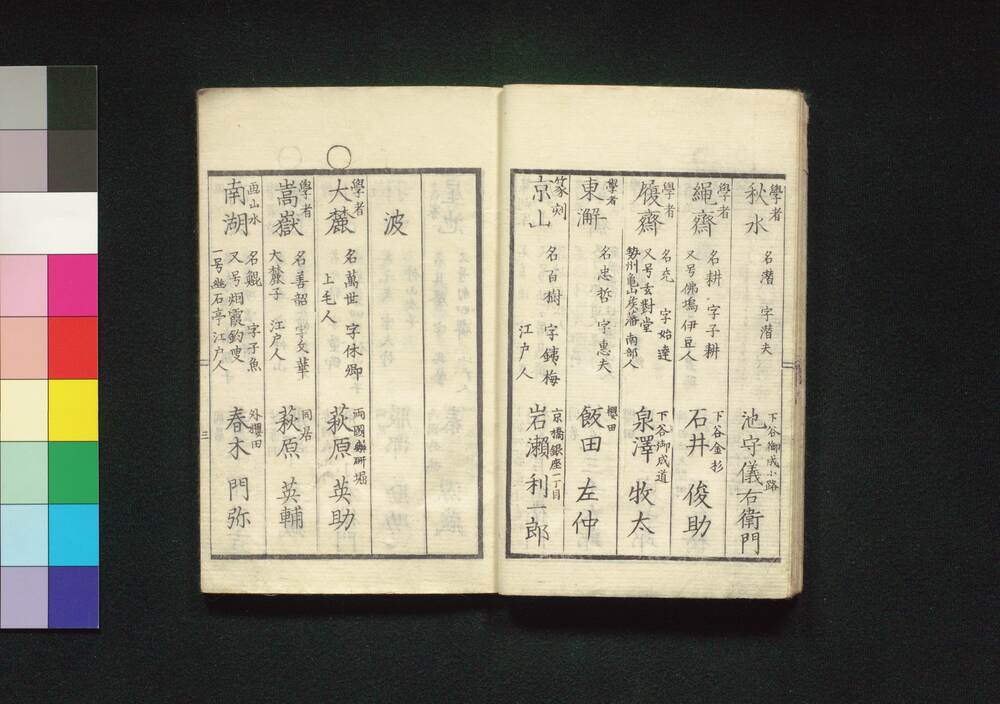 學者
秋水
名潛 字潛夫
下谷御成小路
池守儀右衛門
學者
繩齋
名耕 字子耕
又号佛塢 伊豆人
下谷金杉
石井 俊助
學者
履齋
名充 字始達
又号玄對堂
勢州亀山矦藩 南部人
下谷御成道
泉澤 牧太
學者
東澥
名忠哲 字惠夫
櫻田
飯田 左仲
篆刻
京山
名百樹 字銕梅
江戸人
京橋銀座一丁目
岩瀬利一郎
波
○
學者
大麓
名萬世 字休卿
上毛人
両國藥研堀
萩原 英助
學者
嵩嶽
名善韶 字文華
大麓子 江戸人
同居
萩原 英輔
画山水
南湖
名鯤 字子魚
又号烟霞釣叟
一号幽石亭 江戸人
外櫻田
春木 門弥
三